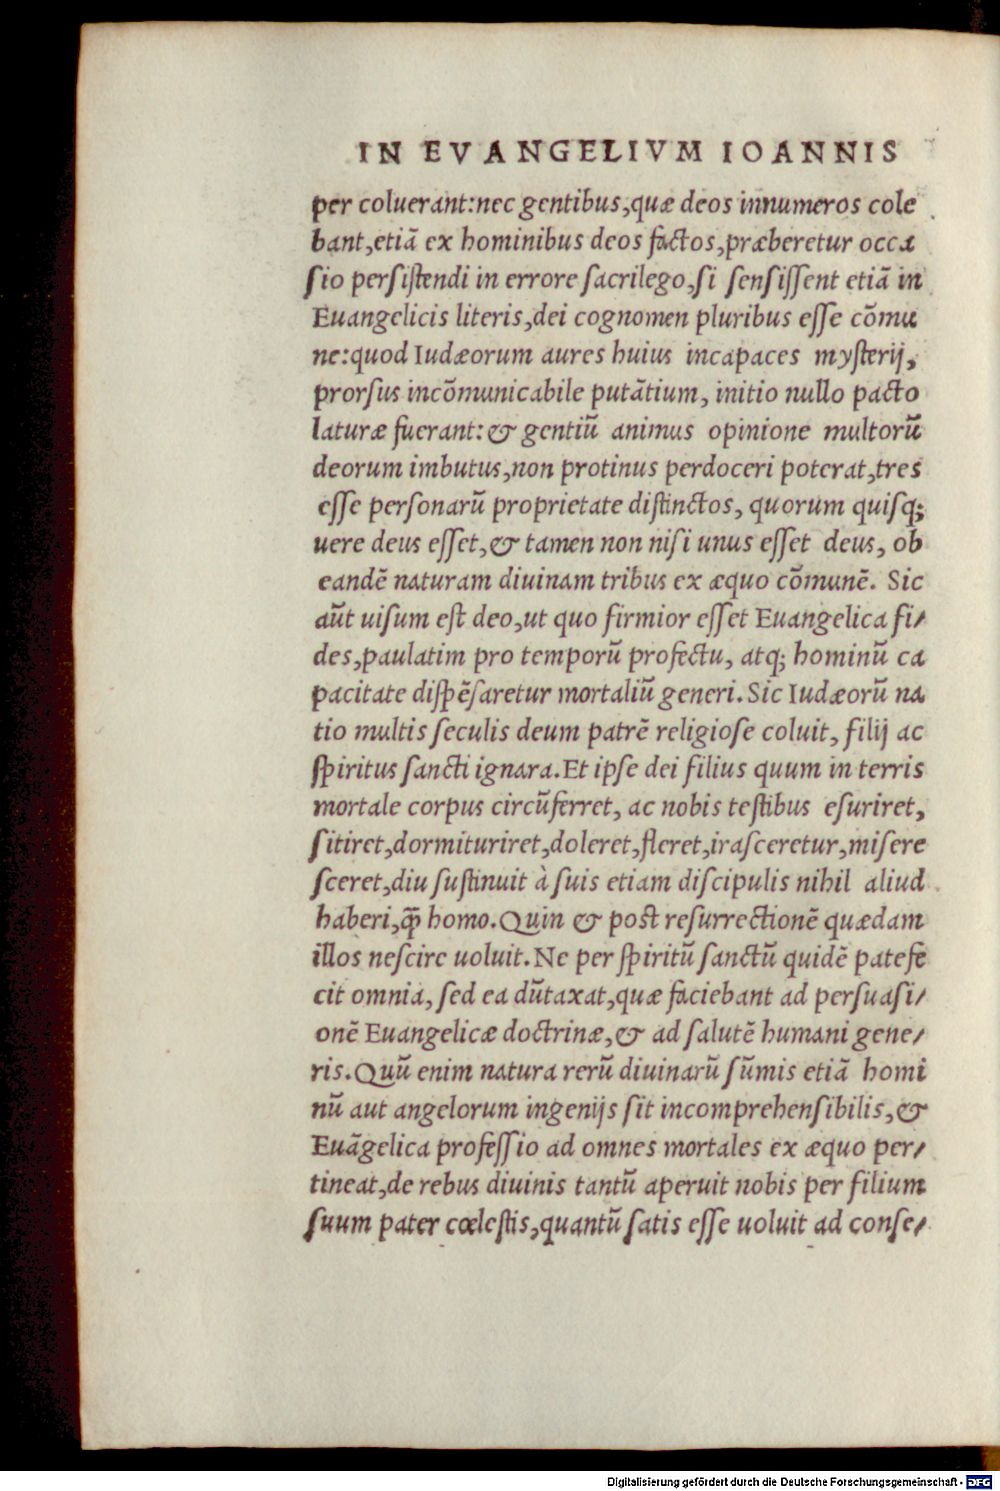 IN EVANGELIVM IOANNIS
per coluerant:nec gentibus,quæ deos innumeros cole
bant,etiã ex hominibus deos factos,præberetur occa
sio persistendi in errore sacrilego,si sensissent etiã in
Euangelicis literis,dei cognomen pluribus esse cõmu
ne:quod Iudæorum aures huius incapaces mysterij,
prorsus incõmunicabile putãtium, initio nullo pacto
laturæ fuerant:& gentiũ animus opinione multorũ
deorum imbutus,non protinus perdoceri poterat,tres
esse personarũ proprietate distinctos, quorum quisq;
uere deus esset,& tamen non nisi unus esset deus, ob
eandẽ naturam diuinam tribus ex æquo cõmunẽ. Sic
aũt uisum est deo,ut quo firmior esset Euangelica fi/
des,paulatim pro temporũ profectu, atq; hominũ ca
pacitate dispẽsaretur mortaliũ generi. Sic Iudæorũ na
tio multis seculis deum patrẽ religiose coluit, filij ac
spiritus sancti ignara. Et ipse dei filius quum in terris
mortale corpus circũferret, ac nobis testibus esuriret,
sitiret,dormituriret,doleret,fleret,irasceretur,misere
sceret,diu sustinuit à suis etiam discipulis nihil aliud
haberi,q̃ homo. Quin & post resurrectionẽ quædam
illos nescire uoluit. Ne per spiritũ sanctũ quidẽ patefe
cit omnia, sed ea dũtaxat,quæ faciebant ad persuasi/
onẽ Euangelicæ doctrinæ,& ad salutẽ humani gene/
ris. Quũ enim natura rerũ diuinarũ sũmis etiã homi
nũ aut angelorum ingenijs sit incomprehensibilis,&
Euãgelica professio ad omnes mortales ex æquo per/
tineat,de rebus diuinis tantũ aperuit nobis per filium
suum pater cœlestis,quantũ satis esse uoluit ad conse/
Digitalisierung gefördert durch die Deutsche Forschungsgemeinschaft - DFG